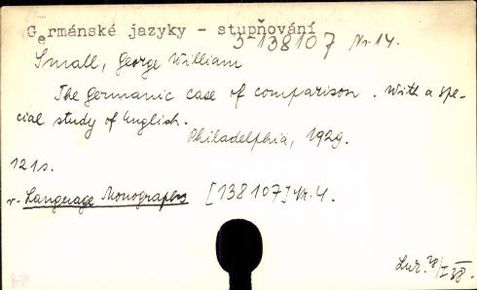 Germánské jazyky - stupňování
5-138107 Nr. 14.
Small, George William
The Germanic case of comparison. With a spe-
cial study of English.
Philadelphia, 1929.
121s.
v. Language Monographs [138107] Nr. 4.
Lur. 28/I 38.